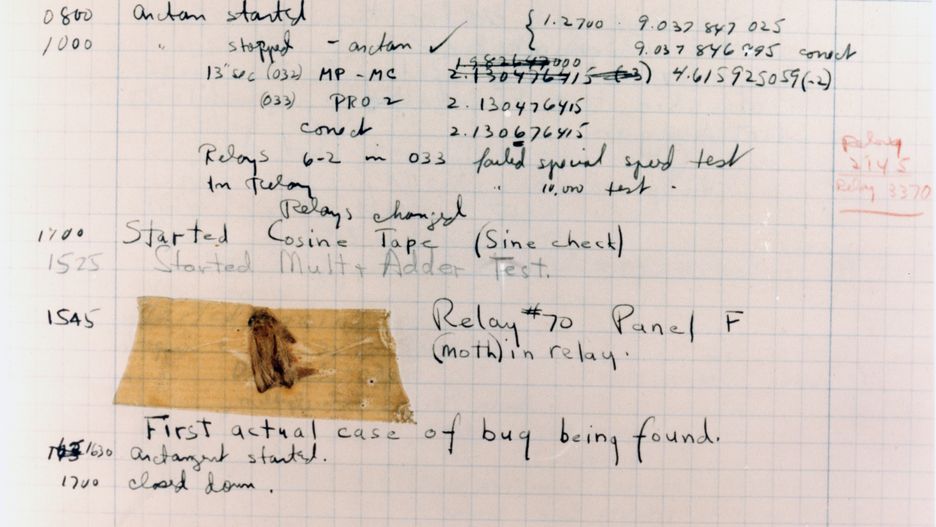 0800 arctan started { 1.2700 9.037 847 025
1000 " stopped - arctan ✓ 9.037 846 995 conect
1.982647000
13"sec (032) MP - MC 2.130476415 (-3) 4.615925059(-2)
(033) PRO 2 2.130476415
conect 2.130676415
Relays 6-2 in 033 failed special speed test
In Relay " 10,000 test.
Relay
2145
Relay 3370
Relays changed
1100 Started Cosine Tape (Sine check)
1525 Started Mult+ Adder Test.
1545 Relay #70 Panel F
(moth) in relay.
First actual case of bug being found.
1630 arctangent started.
1700 closed down.